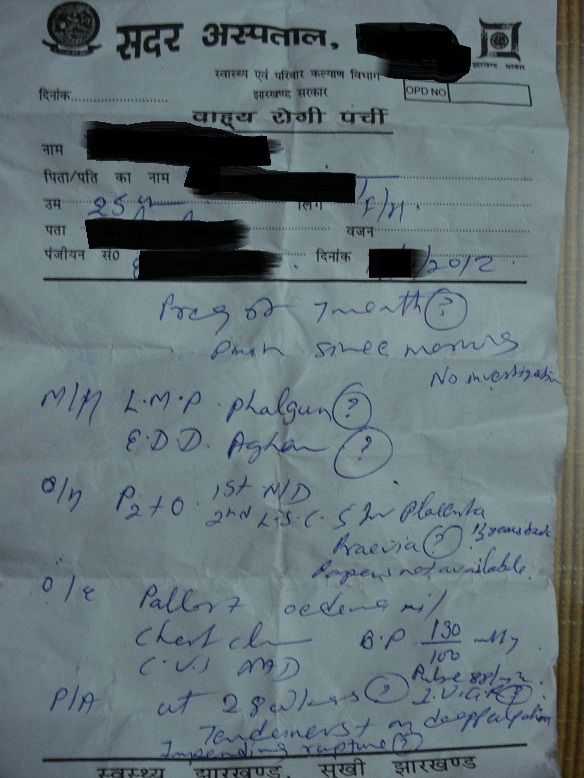 सदर अस्पताल,
स्वास्थ्य एवं परिवार कल्याण विभाग
झारखण्ड सरकार
झारखण्ड सरकार
दिनांक
OPD NO
वाह्य रोगी पर्ची
नाम
पिता/पति का नाम
उम्र 25 लिंग F/M.
पता वजन
पंजीयन सं0 दिनांक /2012
Preg of 7 month (?)
Pain since morning
No investigation
M/H L.M.P. Phalgun (?)
E.D.D. Aghan (?)
O/H P2+0 1st N/D
2nd L.S.C.S for Placenta
Praevia (?)
Papers not available.
O/E Pallor+ oedema nil
Chest B.P 130/100 mmHg
C.V.S NAD Pulse
P/A ut 28 weeks (?) I.U.G.R (?)
Tenderness + on deep palpation
Impending rupture (?)
स्वस्थ्य झारखण्ड, सुखी झारखण्ड